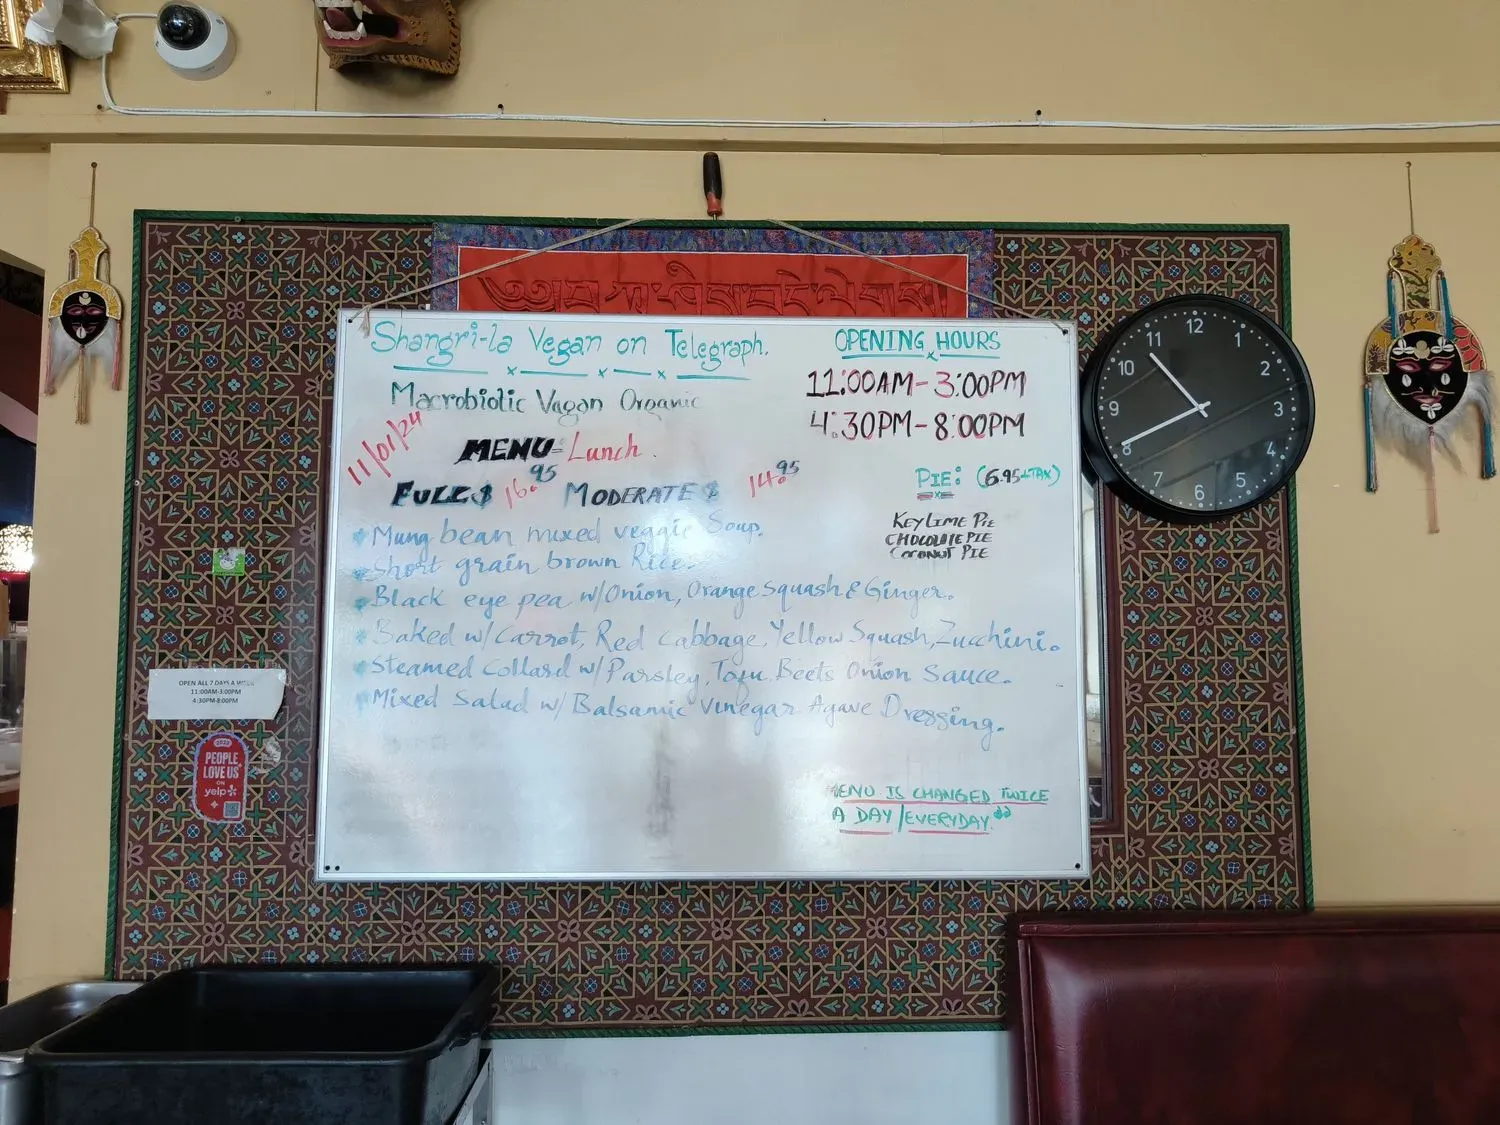 Shangri-la Vegan on Telegraph.
Macrobiotic Vagan Organic
11/01/24
MENU= Lunch.
FULL $ 16.95 MODERATE $ 14.95
Mung bean mixed veggie Soup.
Short grain brown Rice.
Black eye pea w/Onion, Orange Squash & Ginger.
Baked w/Carrot, Red Cabbage, Yellow Squash, Zucchini.
Steamed Collard w/Parsley, Tofu, Beets Onion Sauce.
Mixed Salad w/Balsamic Vinegar Agave Dressing.
OPENING HOURS
11:00AM-3:00PM
4:30PM-8:00PM
PIE: (6.95+TAX)
KEY LIME PIE
CHOCOLATE PIE
COCONUT PIE
MENU IS CHANGED TWICE
A DAY/EVERYDAY.
12
1
2
3
4
5
6
7
8
9
10
11
OPEN ALL 7 DAYS A WEEK
11:00AM-3:00PM
4:30PM-8:00PM
PEOPLE
LOVE US
ON
yelp